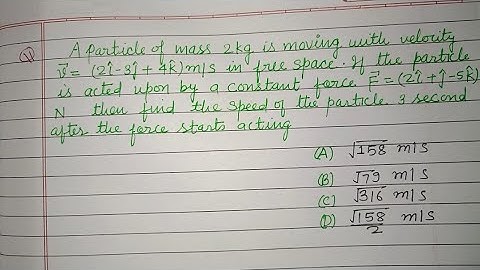 Q A particle of mass 2kg is moving with velocity
v⃗ = (2î-3ĵ+4k̂)m/s in free space. If the particle
is acted upon by a constant force F⃗=(2î+ĵ-5k̂)
N then find the speed of the particle 3 second
after the force starts acting
(A) √158 m/s
(B) √79 m/s
(C) √316 m/s
(D) √158/2 m/s